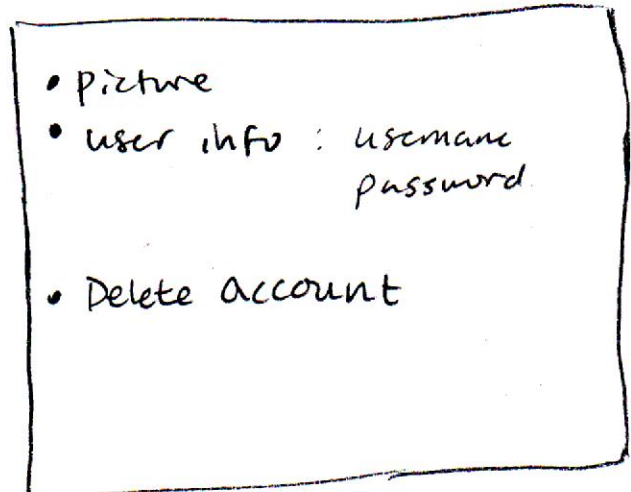 • picture
• user info : username
password
• Delete account